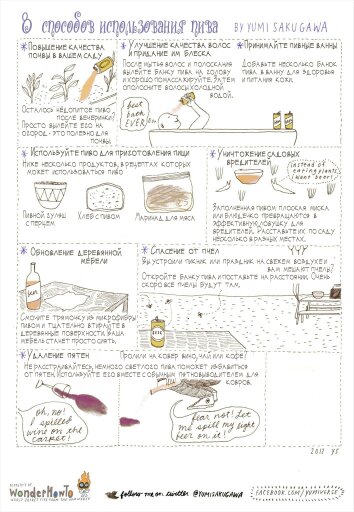 8 способов использования пива
BY YUMI SAKUGAWA
* Повышение качества
почвы в вашем саду
Осталось недопитое пиво
после вечеринки?
Просто вылейте его на
огород - это полезно для
почвы.
* Улучшение качества волос
и придание им блеска
После мытья волос и полоскания
вылейте банку пива на голову
и хорошо помассажируйте. Затем
ополосните волосы холодной
водой.
* Принимайте пивные ванны
Добавьте несколько банок
пива в ванну для здоровья
и питания кожи.
best
bath
EVER
* Используйте пиво для приготовления пищи
Ниже несколько продуктов, в рецептах которых
может использоваться пиво
Пивной гуляш
с перцем
Хлеб с пивом
Маринад для мяса
* Уничтожение садовых
вредителей
instead of
eating plants,
want beer!
Заполненная пивом плоская миска
или блюдечко превращаются в
эффективную ловушку для
вредителей. Расставьте их по саду
несколько в разных местах.
* Обновление деревянной
мебели
Смочите тряпочку из микрофибры
пивом и тщательно втирайте в
деревянные поверхности. Ваша
мебель станет просто сиять.
* Спасение от пчел
Вы устроили пикник или праздник на свежем воздухе и
вам мешают пчелы?
Откройте банку пива и поставьте на расстоянии. Очень
скоро все пчелы будут там.
* Удаление пятен
Пролили на ковер вино, чай или кофе?
Не расстраивайтесь, немного светлого пива поможет избавиться
от пятен. Используйте его вместе с обычным пятновыводителем для
ковров.
oh, no!
I spilled
wine on the
carpet!
Fear not! Let
me spill my light
beer on it!
2012 YS
WonderHowTo
follow me on twitter @YUMISAKUGAWA
FACEBOOK.COM/YUMIVERSE